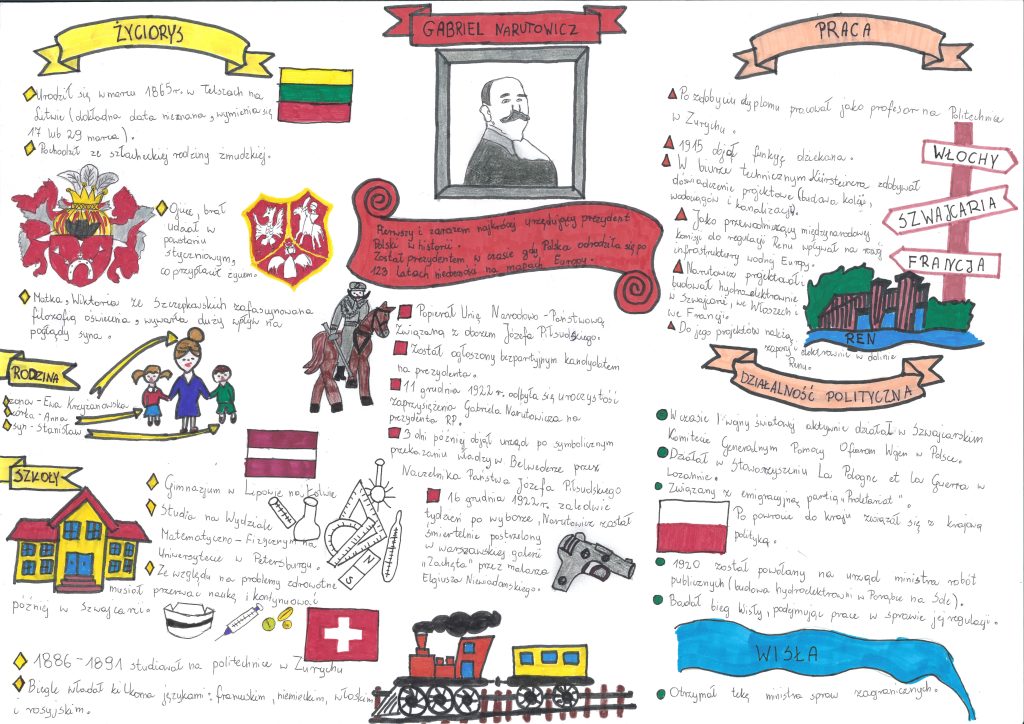 GABRIEL NARUTOWICZ
Pierwszy i zarazem najkrócej urzędujący prezydent
Polski w historii.
Został prezydentem w czasie gdy Polska odrodziła się po
123 latach niebecności na mapach Europy.
ŻYCIORYS
Urodził się w marcu 1865r. w Telszach na
Litwie (dokładna data nieznana, wymienia się
17 lub 29 marca).
Pochodził ze szlacheckiej rodziny żmudzkiej.
Ojciec, brał
udział w
powstaniu
styczniowym,
co przypłacił życiem.
Matka, Wiktoria ze Szczepkowskich zafascynowana
filozofią oświecenia, wywarła duży wpływ na
poglądy syna.
RODZINA
żona - Ewa Krzyżanowska
córka - Anna
syn - Stanisław
SZKOŁY
Gimnazjum w Lepowie na Łotwie
Studia na Wydziale
Matematyczno - Fizycznym na
Uniwersytecie w Petersburgu.
Ze względu na problemy zdrowotne
musiał przerwać naukę i kontynuować
później w Szwajcarii.
1886 - 1891 studiował na politechnice w Zurychu
Biegle władał kilkoma językami: francuskim, niemieckim, włoskim
i rosyjskim.
Popierał Unię Narodowo - Państwową
związaną z obozem Józefa Piłsudskiego.
Został ogłoszony bezpartyjnym kandydatem
na prezydenta.
11 grudnia 1922r. odbyła się uroczystość
zaprzysiężenia Gabriela Narutowicza na
prezydenta RP.
3 dni później objął urząd po symbolicznym
przekazaniu władzy w Belwederze przez
Naczelnika Państwa Józefa Piłsudskiego
16 grudnia 1922r. zaledwie
tydzień po wyborze, Narutowicz został
śmiertelnie postrzelony
w warszawskiej galerii
„Zachęta" przez malarza
Eligiusza Niewiadomskiego.
N
S
PRACA
Po zdobyciu dyplomu pracował jako profesor na Politechnice
w Zurychu.
1915 objął funkcję dziekana.
W biurze technicznym Kürsteinera zdobywał
doświadczenie projektowe (budowa kolei,
wodociągów i kanalizacji).
Jako przewodniczący międzynarodowej
komisji do regulacji Renu wpływał na rozwój
infrastruktury wodnej Europy.
Narutowicz projektował i
budował hydroelektrownie
w Szwajcarii, we Włoszech i
we Francji.
Do jego projektów należą
zapory i elektrownie w dolinie
Renu.
WŁOCHY
SZWAJCARIA
FRANCJA
REN
DZIAŁALNOŚĆ POLITYCZNA
W czasie I wojny światowej aktywnie działał w Szwajcarskim
Komitecie Generalnym Pomocy Ofiarom Wojen w Polsce.
Działał w Stowarzyszeniu La Pologne et la Guerre w
Lozannie.
Związany z emigracyjną partią „Proletariat".
Po powrocie do kraju związał się z krajową
polityką.
1920 został powołany na urząd ministra robót
publicznych (budowa hydroelektrowni w Porąbce na Sole).
Badał bieg Wisły, podejmując prace w sprawie jej regulacji.
WISŁA
Otrzymał tekę ministra spraw zagranicznych.